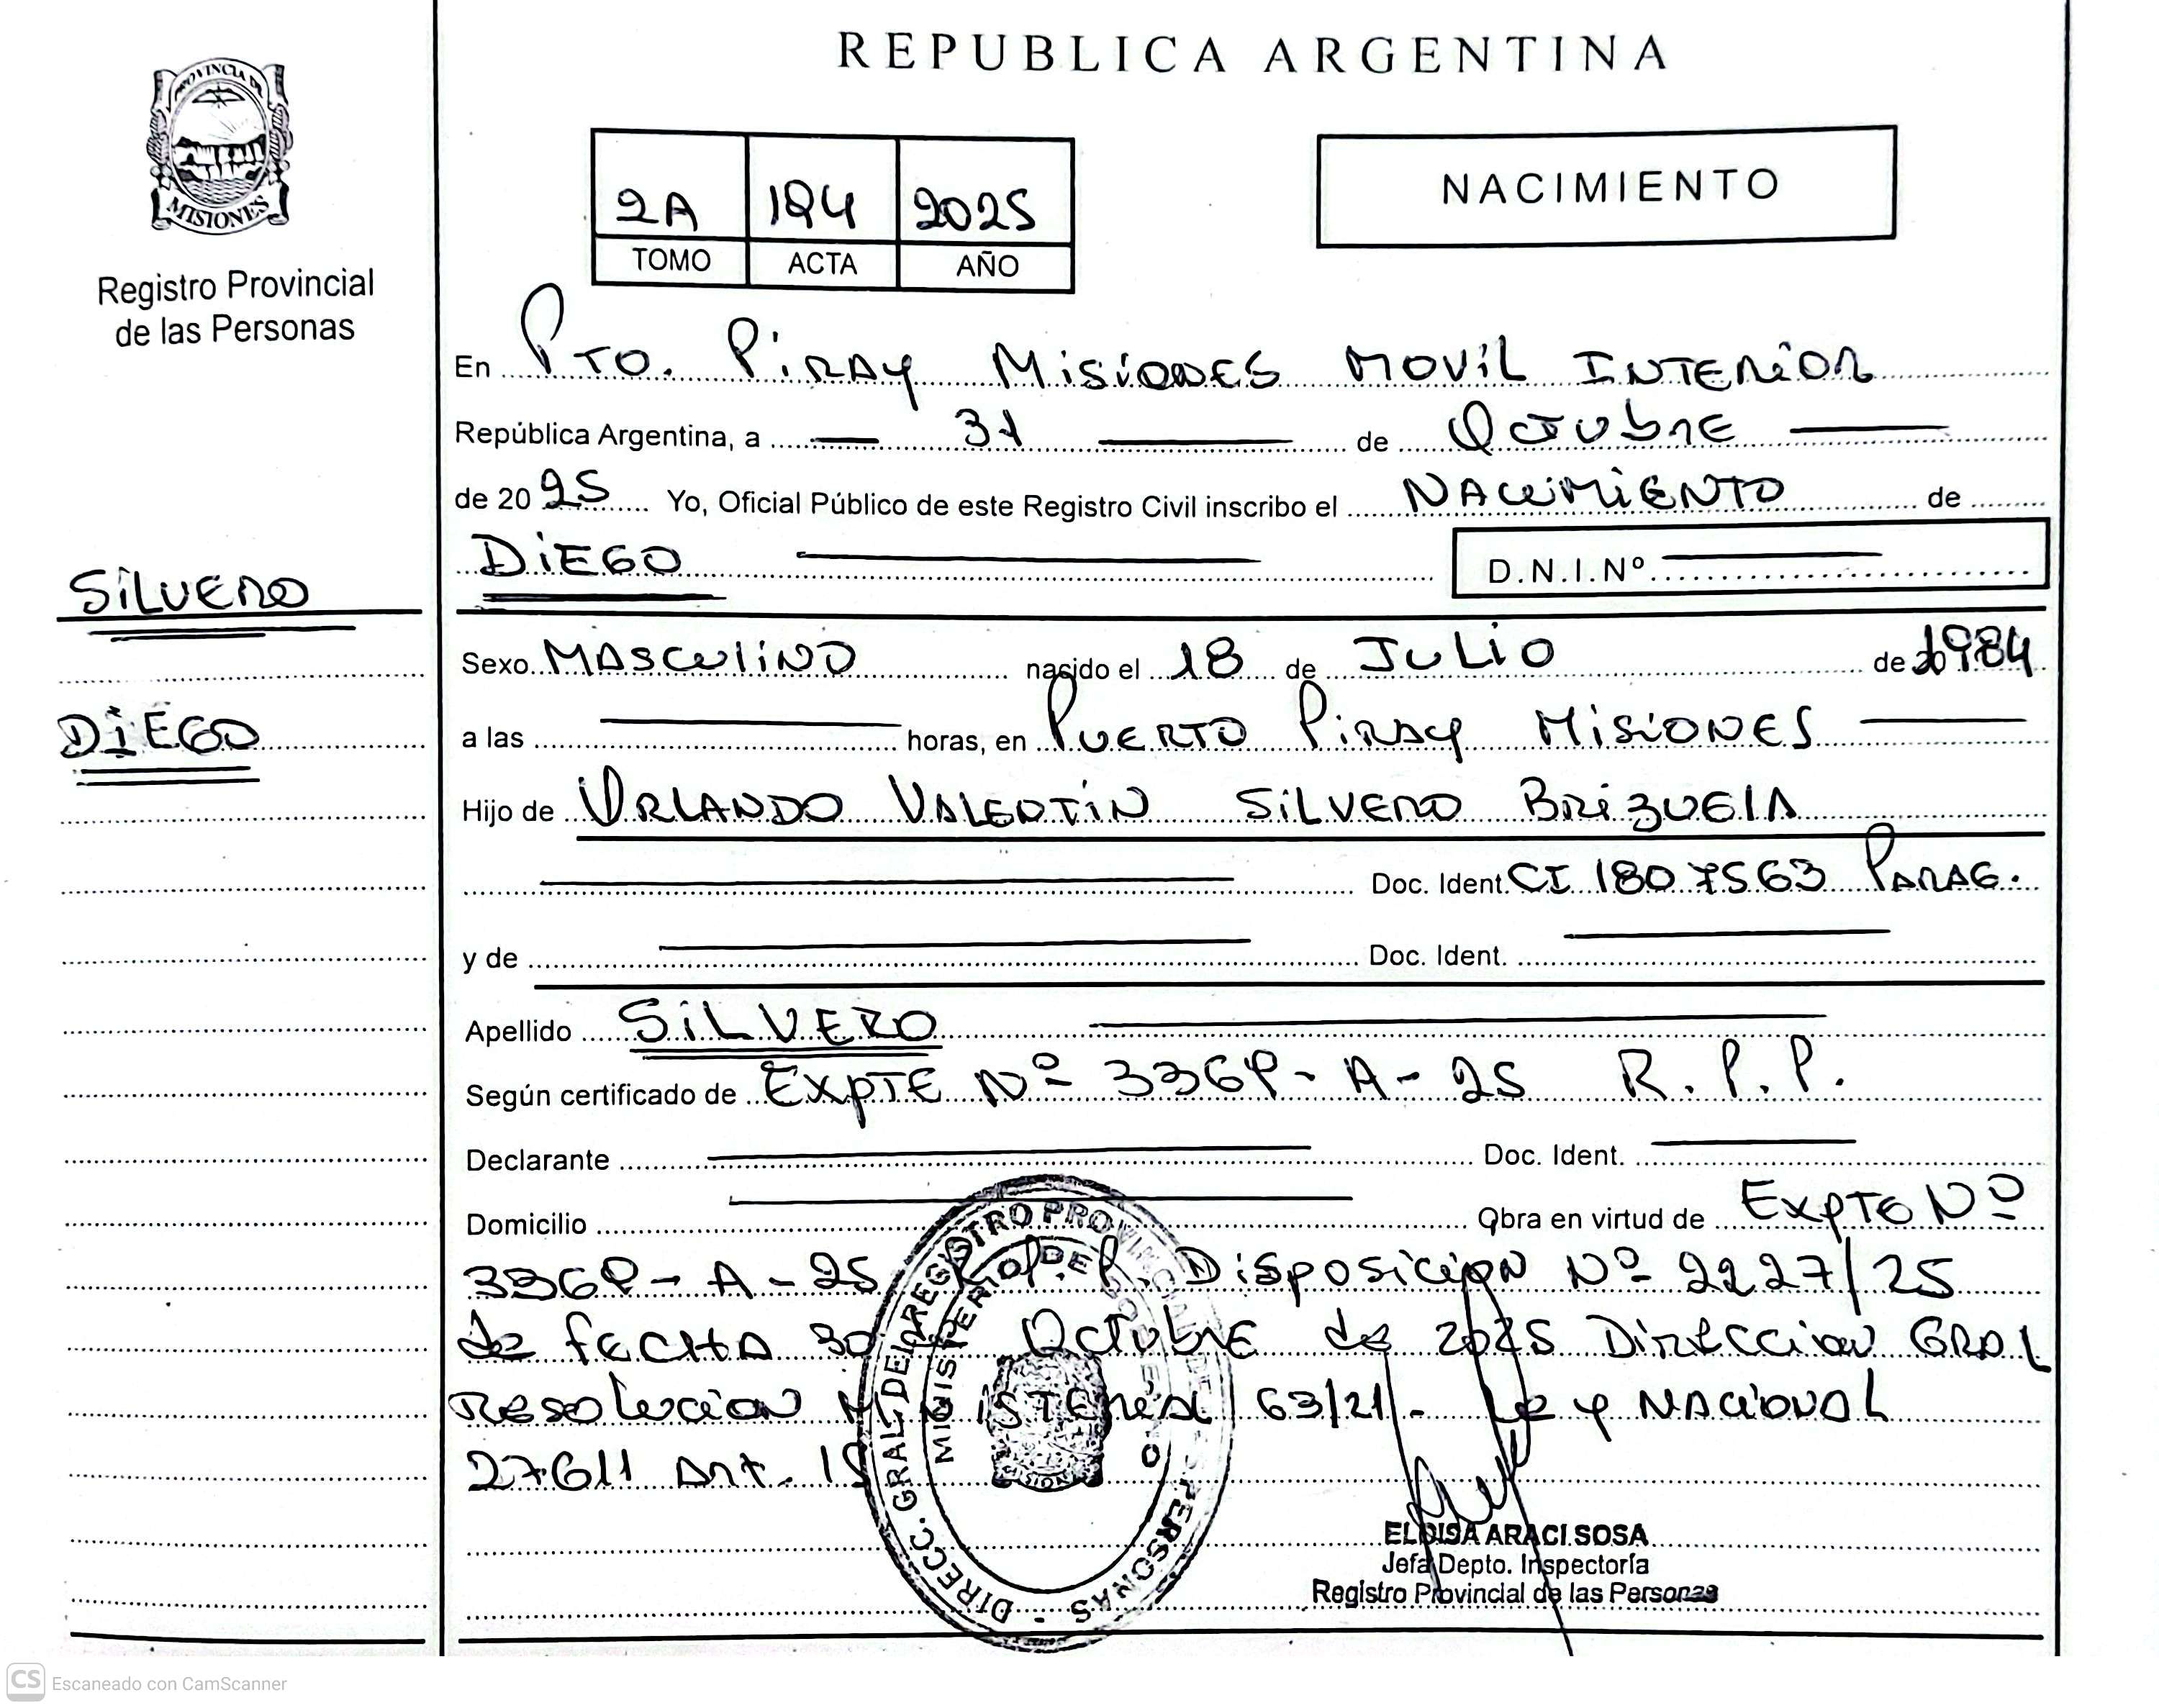 REPUBLICA ARGENTINA
PROVINCIA DE
MISIONES
Registro Provincial
de las Personas
2A 194 2025
TOMO ACTA AÑO
NACIMIENTO
En Pto. Piray Misiones Movil Interior
República Argentina, a 31 de Octubre
de 2025 Yo, Oficial Público de este Registro Civil inscribo el Nacimiento de
Diego D.N.I.Nº
Silvero
Diego
Sexo Masculino nacido el 18 de Julio de 1984
a las horas, en Puerto Piray Misiones
Hijo de Orlando Valentin Silvero Brizuela
Doc. Ident. CI 1807563 Parag.
y de Doc. Ident.
Apellido Silvero
Según certificado de Expte Nº 3369-A-25 R.P.P.
Declarante Doc. Ident.
Domicilio Obra en virtud de Expte Nº
3369-A-25 R.P.P. Disposicion Nº 2227/25
de fecha 30 Octubre de 2025 Direccion Gral
Resolucion Ministerial 63/21 - Ley Nacional
27611 Art. 15
DIRECC. GRAL. DEL REGISTRO PROVINCIAL DE LAS PERSONAS
ELOISA ARACI SOSA
Jefa Depto. Inspectoría
Registro Provincial de las Personas
CS Escaneado con CamScanner